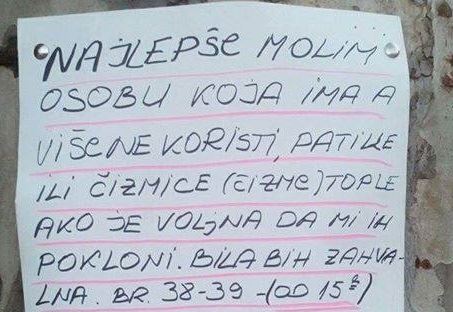 NAJLEPŠE MOLIM
OSOBU KOJA IMA A
VIŠE NE KORISTI, PATIKE
ILI ČIZMICE (ČIZME) TOPLE
AKO JE VOLJNA DA MI IH
POKLONI. BILA BIH ZAHVA-
LNA. BR. 38-39 - (OD 15h)